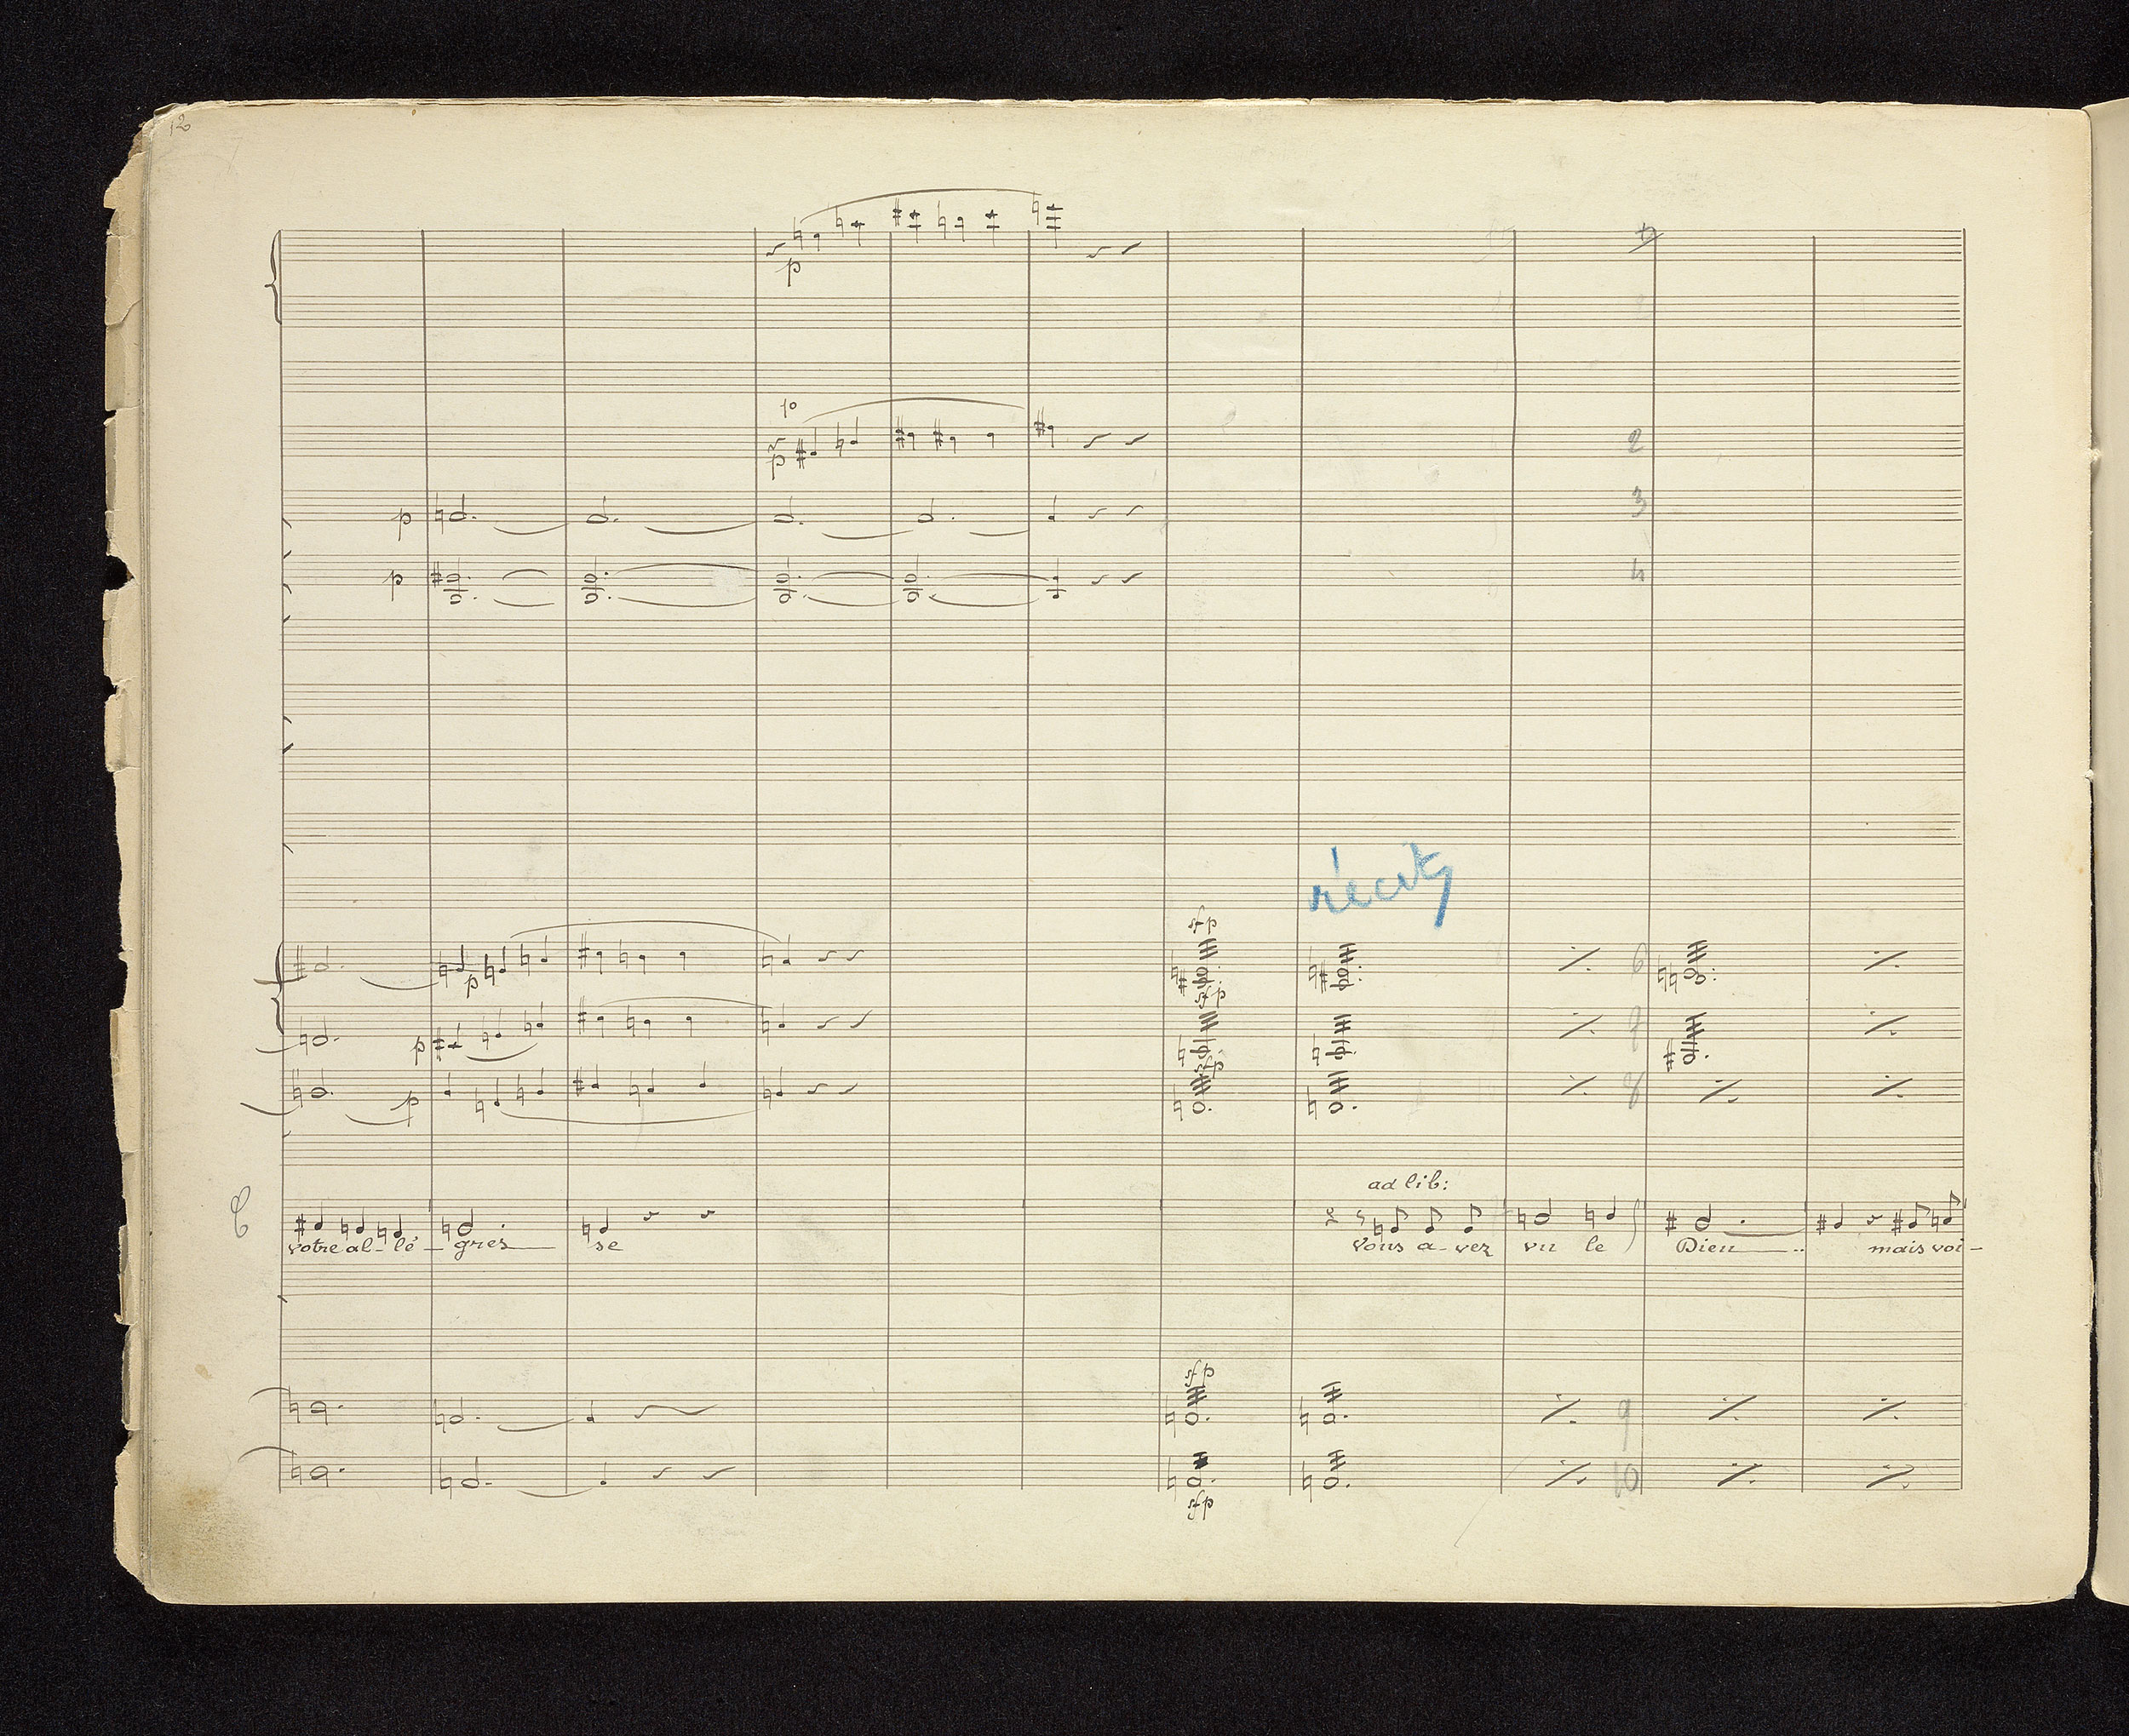 12
p
1º
p
2
3
p
4
p
récit
sfp
p
6
sfp
p
7
sfp
p
8
ad lib:
votre al-lé-gres se vous a-vez vu le Dieu .. mais voi-
sfp
9
10
sfp